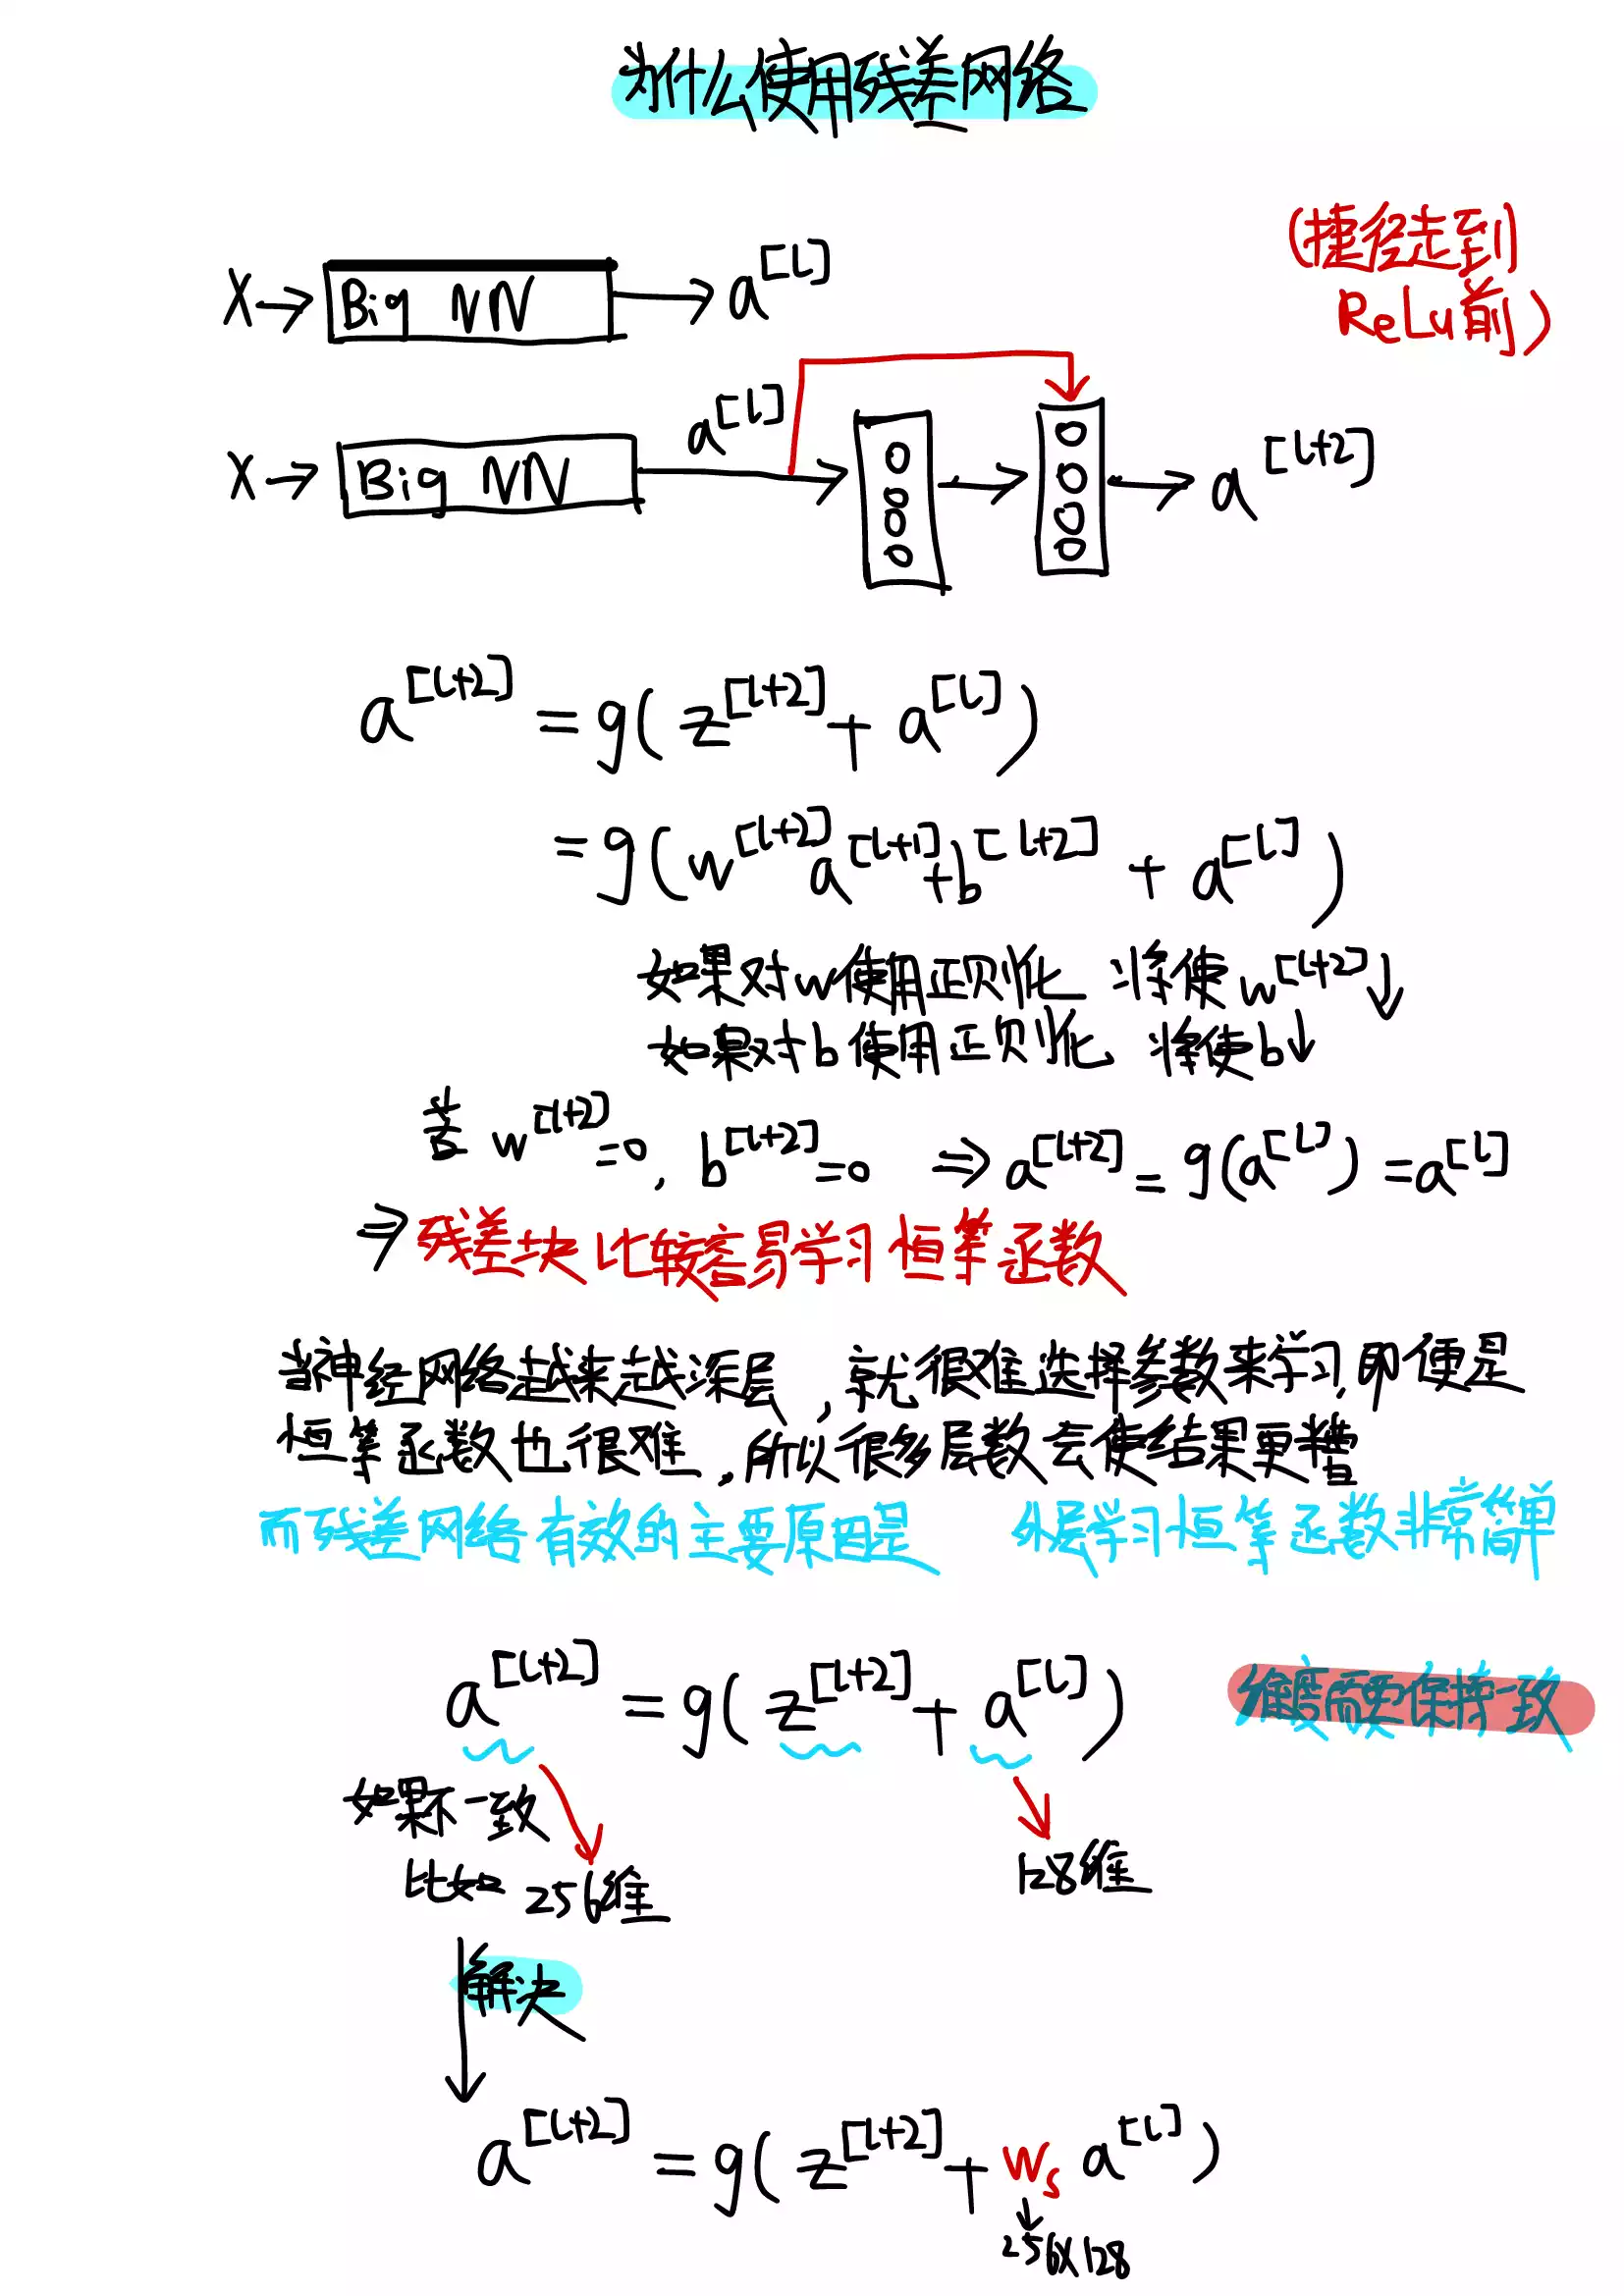 为什么使用残差网络
(捷径走到
ReLu前)
X→ Big NN → a^[l]
X→ Big NN a^[l] → → → a^[l+2]
a^[l+2] = g( z^[l+2] + a^[l] )
= g( w^[l+2] a^[l+1] + b^[l+2] + a^[l] )
如果对w使用正则化 将使w^[l+2]↓
如果对b使用正则化 将使b↓
若 w^[l+2]=0, b^[l+2]=0 ⇒ a^[l+2] = g(a^[l]) = a^[l]
⇒ 残差块比较容易学习恒等函数
当神经网络越来越深层,就很难选择参数来学习,即便是
恒等函数也很难,所以很多层数会使结果更糟
而残差网络有效的主要原因是 外层学习恒等函数非常简单
a^[l+2] = g( z^[l+2] + a^[l] ) 维度需要保持一致
如果不一致
比如 256维 128维
解决
a^[l+2] = g( z^[l+2] + Ws a^[l] )
256X128